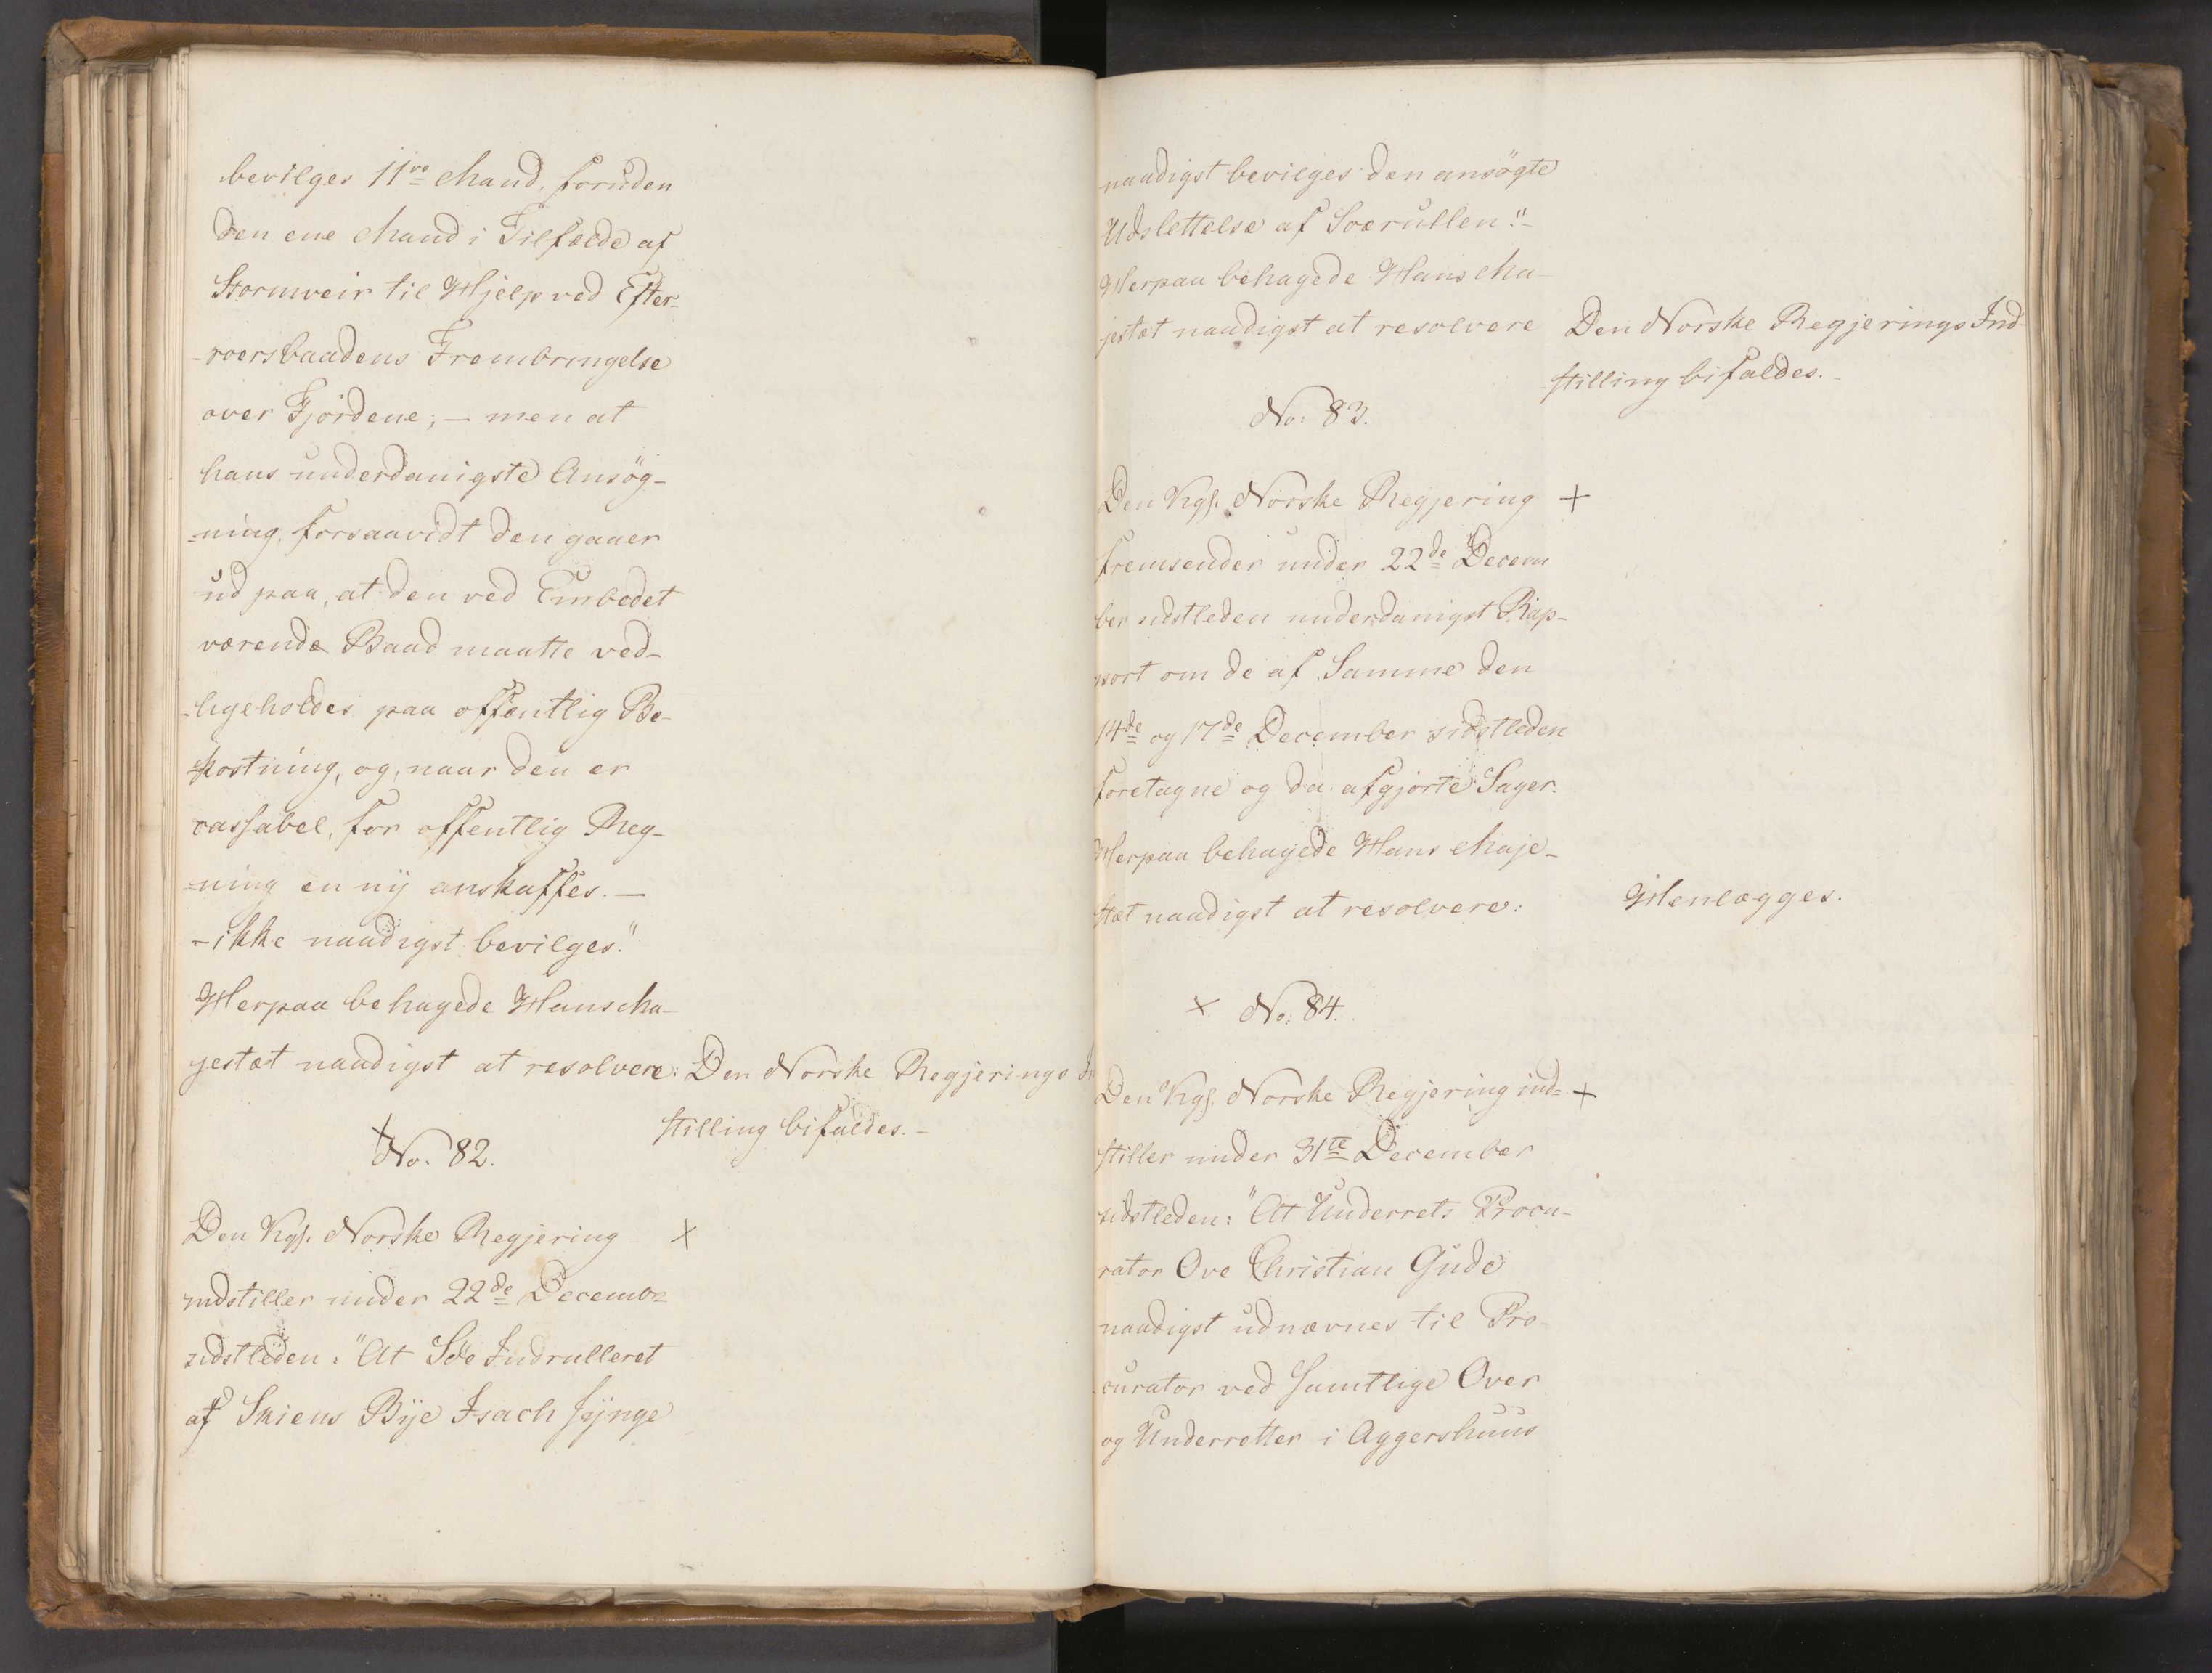 bevilges 11ve Mand, foruden
den ene Mand i Tilfælde af
Stormveir til Hjelp ved Efter-
-roersbaadens Frembringelse
over Fjordene; — men at
hans underdanigste Ansøg-
-ning, forsaavidt den gaaer
ud paa, at den ved Embedet
værende Baad maatte ved-
-ligeholdes paa offentlig Be-
-kostning, og, naar den er
cassabel, for offentlig Reg-
-ning en nÿ anskaffes. —
-ikke naadigst bevilges."
Herpaa behagede Hans Ma-
jestæt naadigst at resolvere: Den Norske Regjerings
stilling bifaldes.-
+
No. 82.
Den Kgl. Norske Regjering +
indstiller under 22de Decembr
sidstleden: "At Søe Indrulleret
af Skiens Bÿe Isach Jÿnge
naadigst bevilges den ansøgte
Udslettelse af Søerullen."-
Herpaa behagede Hans Ma-
jestæt naadigst at resolvere Den Norske Regjerings Ind-
stilling bifaldes.-
No: 83.
Den Kgl. Norske Regjering +
fremsender under 22de Decem
ber sidstleden underdanigst Rap-
port om de af Samme den
14de og 17de December sidstleden
foretagne og da afgjorte Sager.
Herpaa behagede Hans Maje-
stæt naadigst at resolvere: Henlægges.
+ No: 84.
Den Kgl. Norske Regjering ind= +
stiller under 31te December
sidstleden: "At Underrets Procu-
rator Ove Christian Gude
naadigst udnævnes til Pro-
curator ved samtlige Over
og Underretter i Aggershuus